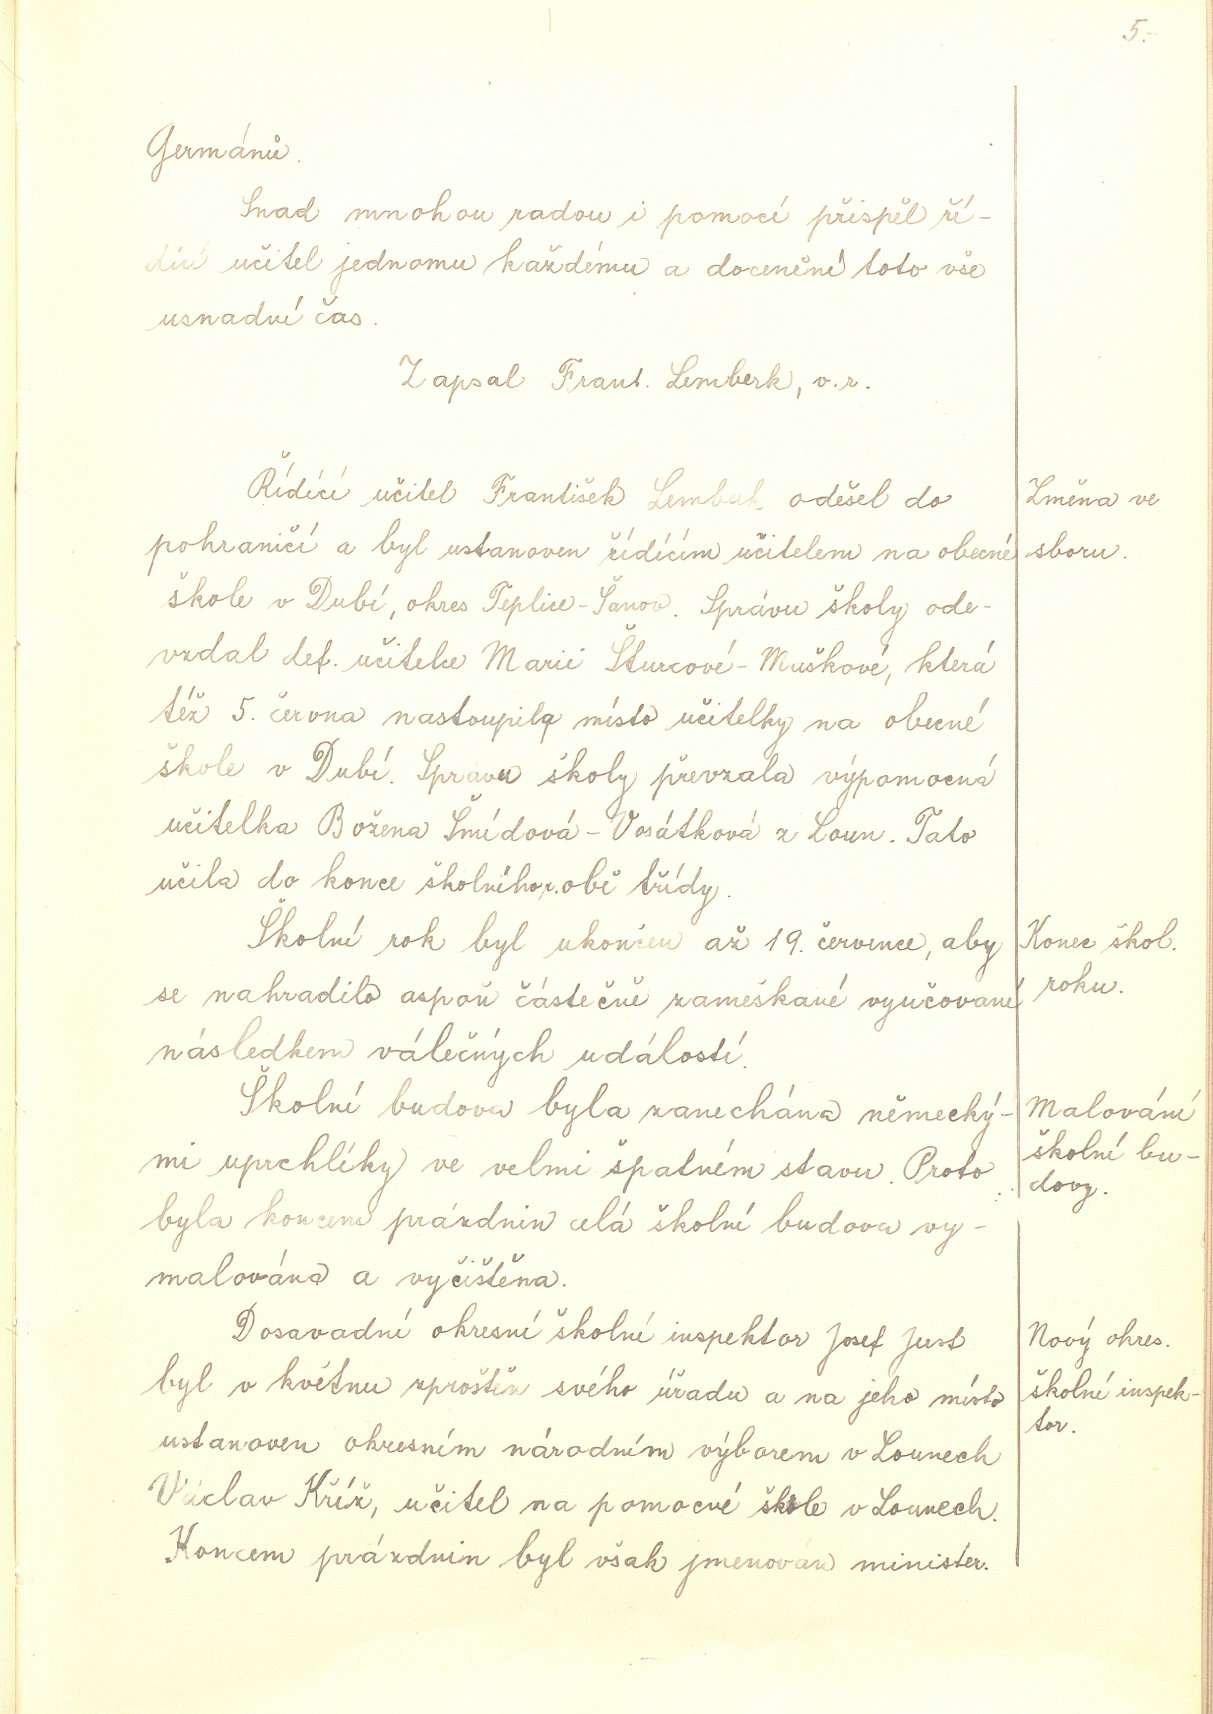 5.-
Germánů.
Snad mnohou radou i pomocí přispěl ří-
dící učitel jednomu každému a docenění toto vše
usnadní čas.
Zapsal Frant. Lemberk, v.r.
Řídící učitel František Lemberk odešel do
pohraničí a byl ustanoven řídícím učitelem na obecné
škole v Dubí, okres Teplice-Šanov. Správu školy ode-
vzdal def. učitelce Marii Šturcové-Muškové, která
též 5. června nastoupila místo učitelky na obecné
škole v Dubí. Správu školy převzala výpomocná
učitelka Božena Šmídová-Vosátková z Loun. Tato
učila do konce školního r. obě třídy.
Změna ve
sboru.
Školní rok byl ukončen až 19. července, aby
se nahradilo aspoň částečně zameškané vyučované
následkem válečných událostí.
Konec škol.
roku.
Školní budova byla zanechána německý-
mi uprchlíky ve velmi špatném stavu. Proto
byla koncem prázdnin celá školní budova vy-
malována a vyčištěna.
Malování
školní bu-
dovy.
Dosavadní okresní školní inspektor Josef Just
byl v květnu zproštěn svého úřadu a na jeho místo
ustanoven okresním národním výborem v Lounech
Václav Kříž, učitel na pomocné škole v Lounech.
Koncem prázdnin byl však jmenován minister.
Nový okres.
školní inspek-
tor.